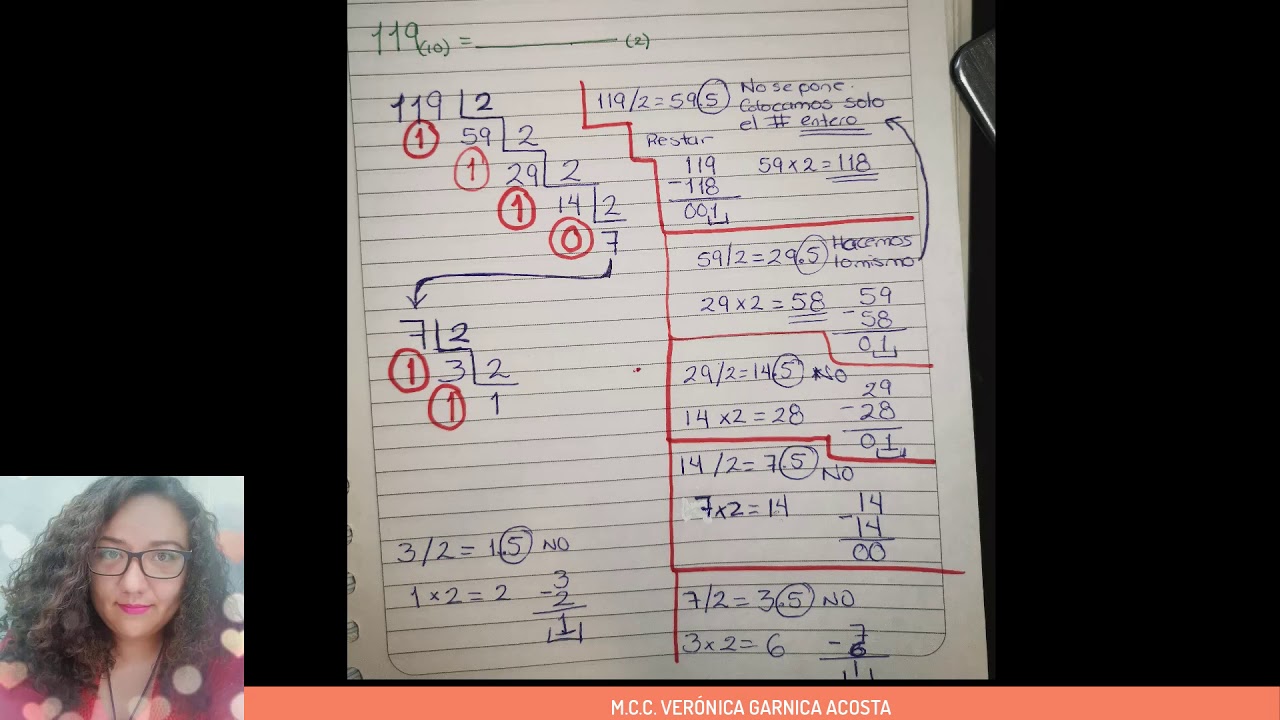 119(10) = ________ (2)
119 2
1 59 2
1 29 2
1 14 2
0 7
7 2
1 3 2
1 1
3/2 = 1.5 NO
1 × 2 = 2
3
- 2
1
119/2 = 59.5
No se pone.
Colocamos solo
el # entero
Restar
119
- 118
001
59 × 2 = 118
59/2 = 29.5
Hacemos
lo mismo
29 × 2 = 58
59
- 58
01
29/2 = 14.5 NO
14 × 2 = 28
29
- 28
01
14/2 = 7.5 NO
7 × 2 = 14
14
- 14
00
7/2 = 3.5 NO
3 × 2 = 6
7
- 6
1
M.C.C. VERÓNICA GARNICA ACOSTA